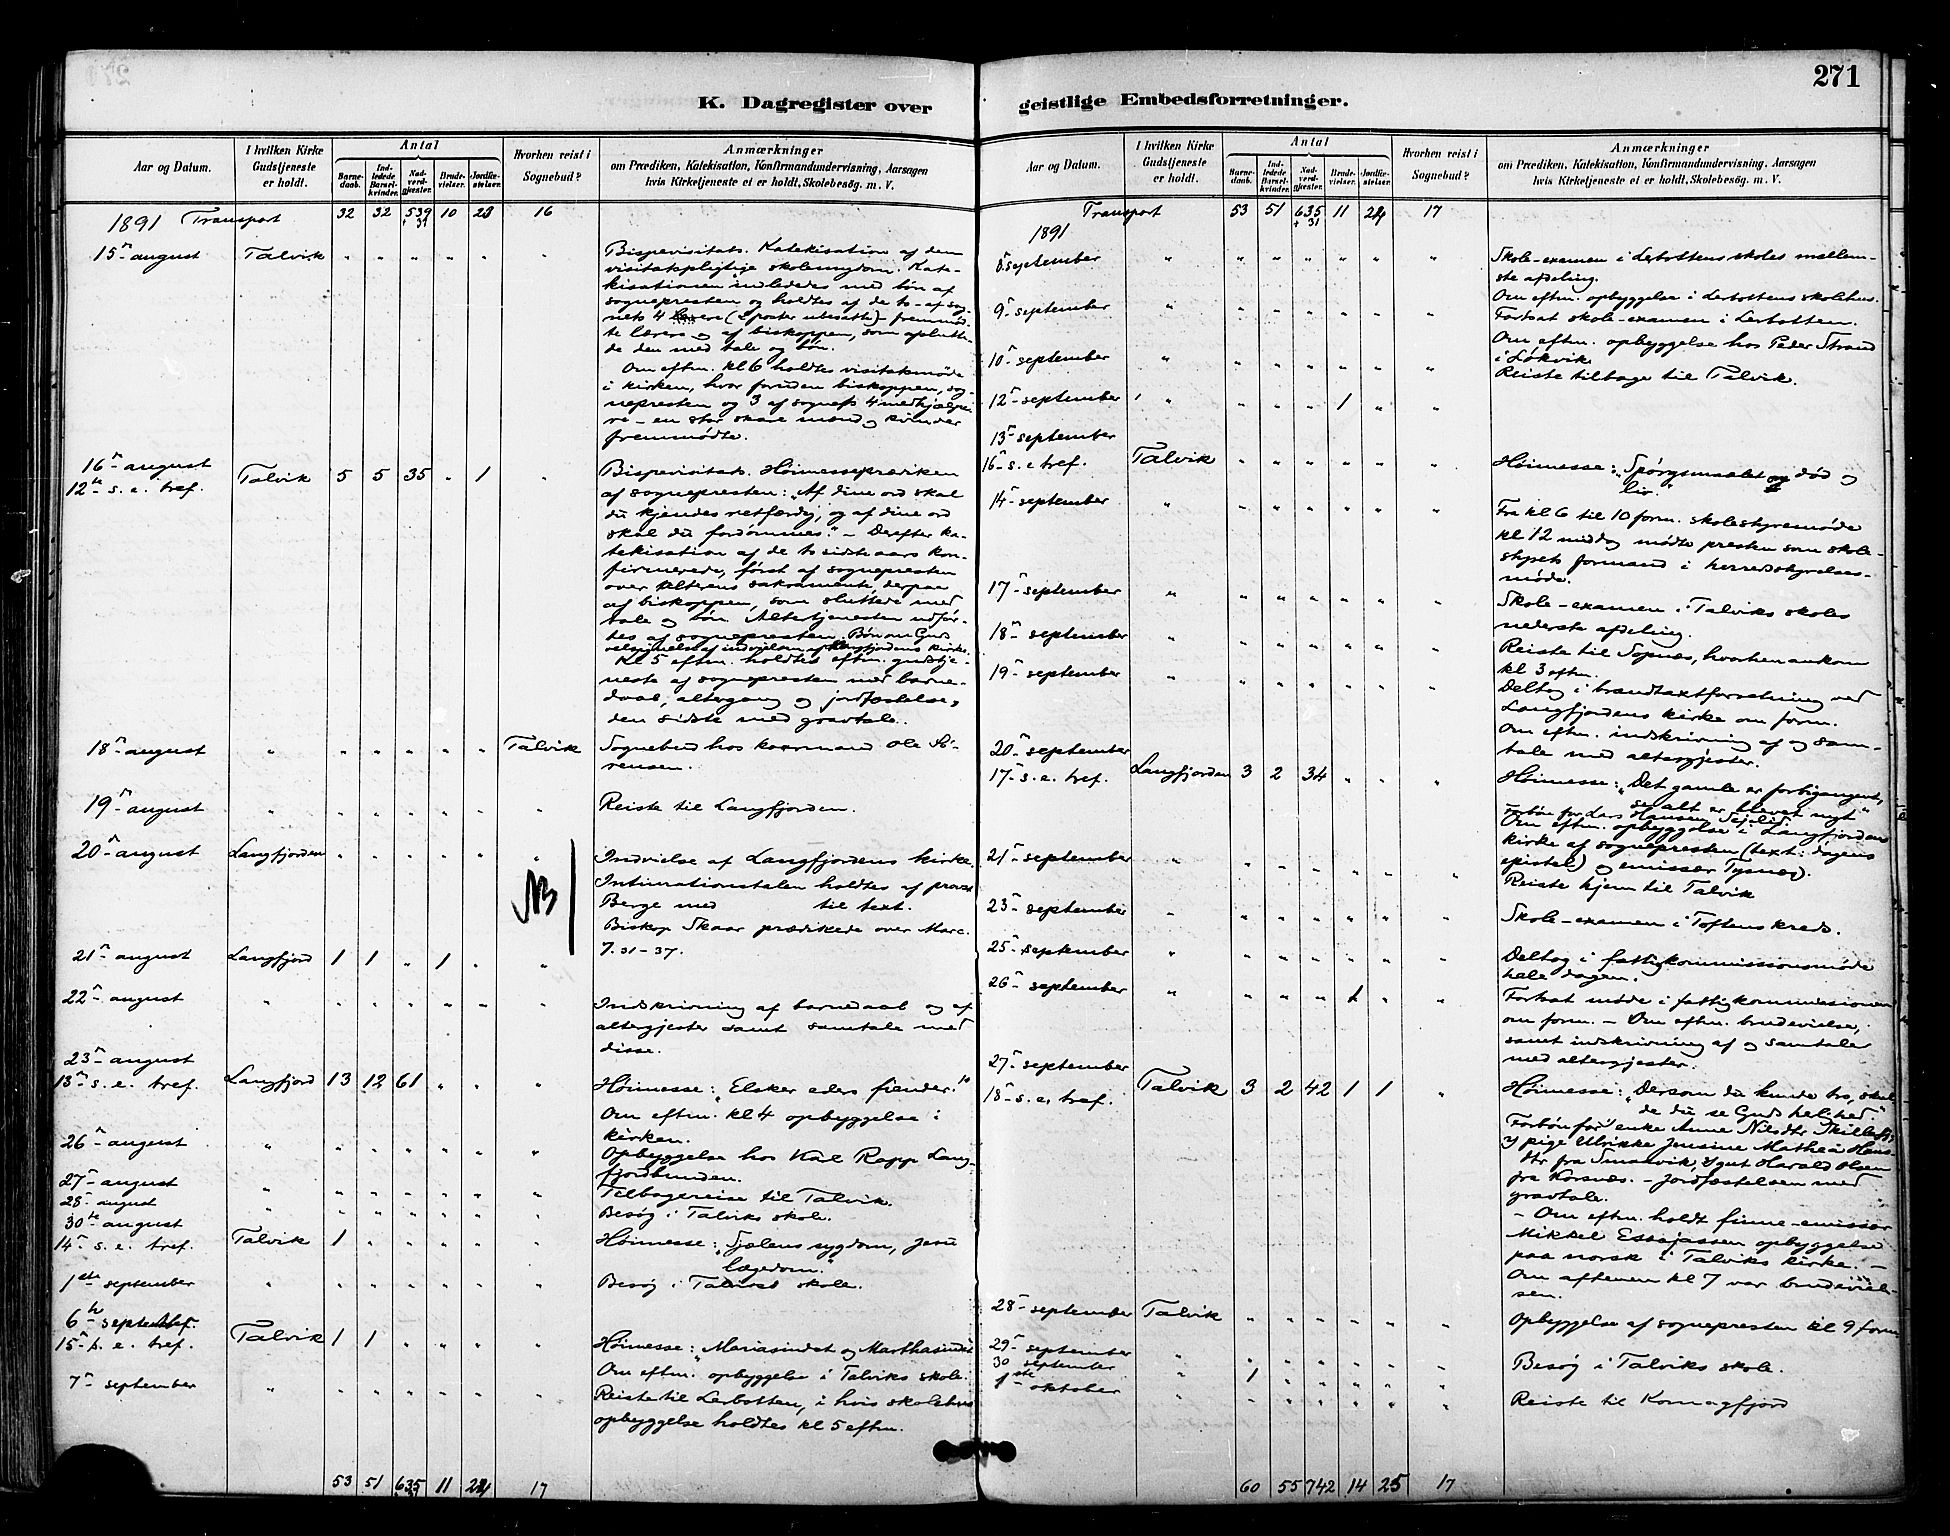 271
K. Dagregister over
geistlige Embedsforretninger.
Aar og Datum.
I hvilken Kirke Gudstjeneste er holdt.
Antal
Barnedaab.
Indledede Barselkvinder.
Nadverdgjester.
Brudevielser.
Jordfæstelser.
Hvorhen reist i Sognebud?
Anmærkninger
om Prædiken, Katekisation, Konfirmandundervisning, Aarsagen
hvis Kirketjeneste ei er holdt, Skolebesøg. m. V.
1891 Transport 32 32 539 10 23 16
+ 31
15n august Talvik " " " " " " Bispevisitats. Katekisation af den
visitatspligtige skoleungdom. Kate-
kisationen indlededes med bøn af
sognepresten og holdtes af de to - af sog-
nets 4 lærere (2 poster ubesatte) - fremmød-
te lærere og af biskoppen, som aplutte-
de den med tale og bøn.
Om eftm. kl 6 holdtes visitatsmøde
i kirken, hvor foruden biskoppen, sog-
nepresten og 3 af sognets 4 medhjælpe-
re - en stor skare mænd og kvinder
fremmødte.
16n august
12te s. e. tref. Talvik 5 5 35 " 1 " Bispevisitats. Høimesseprædiken
af sognepresten: "Af dine ord skal
du kjendes retfærdig, og af dine ord
skal du fordømmes." - Derefter ka-
tekisation af de to sidste aars kon-
firmerede, først af sognepresten
over Alterens sakramente, derpaa
af biskoppen, som sluttede med
tale og bøn. Altertjenesten udfør-
tes af sognepresten. Bøn om Guds
velsignelse af indvielsen af Langfjordens kirke.
Kl 5 eftm. holdtes eftm. gudstje-
neste af sognepresten med barne-
daab, altergang og jordfæstelse,
den sidste med gravtale.
18n august " " " " " " Talvik Sognebud hos kaarmand Ole Sø-
rensen.
19n august " " " " " " " Reiste til Langfjorden.
20n august Langfjorden " " " " " " Indvielse af Langfjordens kirke.
NB Intimationstalen holdtes af provst
Berge med til text.
Biskop Skaar prædikede over Marc.
7. 31 - 37.
21n august Langfjord 1 1 " 1 " "
22n august " " " " " " " Indskrivning af barnedaab og af
altergjester samt samtale med
disse.
23n august
13n s. e. tref. Langfjord 13 12 61 " " " Høimesse: "Elsker eders fiender."
Om eftm. kl 4 opbyggelse i
kirken.
26n august " " " " " " " Opbyggelse hos Karl Rapp Lang-
fjordbunden.
27n august " " " " " " " Tilbagereise til Talvik.
28n august " " " " " " " Besøg i Talviks skole.
30te august
14n s. e. tref. Talvik 1 " " " " " Høimesse: "Sjælens sygdom, Jesu
lægedom."
1ste september " " " " " " " Besøg i Talviks skole.
6te september
15n s. e. tref. Talvik 1 1 " " " " Høimesse: "Mariasindet og Marthasindet"
Om eftm. opbyggelse i Talviks skole.
7n september " " " " " " " Reiste til Lerbotten, i hvis skolehus
opbyggelse holdtes kl 5 eftm.
53 51 635 11 24 17
Aar og Datum.
I hvilken Kirke Gudstjeneste er holdt.
Antal
Barnedaab.
Indledede Barselkvinder.
Nadverdgjester.
Brudevielser.
Jordfæstelser.
Hvorhen reist i Sognebud?
Anmærkninger
om Prædiken, Katekisation, Konfirmandundervisning, Aarsagen
hvis Kirketjeneste ei er holdt, Skolebesøg. m. V.
Transport 53 51 635 11 24 17
+ 31
1891
8n september " " " " " " " Skole-examen i Lerbottens skoles mellem-
ste afdeling.
Om eftm. opbyggelse i Lerbottens skolehus.
9n september " " " " " " " Fortsat skole-examen i Lerbotten.
Om eftm. opbyggelse hos Peder Strand
i Løkvik
10n september " " " " " " " Reiste tilbage til Talvik.
12n september " " " " 1 " "
13n september
16n s. e. tref. Talvik " " " " " " Høimesse: "Spørgsmaalet om død og
liv."
14n september " " " " " " " Fra kl 6 til 10 form. skolestyresmøde
kl 12 middag mødte presten som skole-
styrets formand i herredsstyrelses-
møde.
17n september " " " " " " " Skole-examen i Talviks skoles
nederste afdeling.
18n september " " " " " " " Reiste til Sopnæs, hvorhen ankom
kl 3 eftm.
19n september " " " " " " " Deltog i brandtaxtforretning ved
Langfjordens kirke om form.
Om eftm. indskrivning af og sam-
tale med altergjester.
20n september
17n s. e. tref. Langfjorden 3 2 34 " " " Høimesse: "Det gamle er forbigangent,
se alt er blevet nyt"
Forbøn for Lars Hansen
Om eftm. opbyggelse i Langfjorden
kirke af sognepresten (text: dagens
epistel) og emissær Tysnæs.
21n september " " " " " " " Reiste hjem til Talvik
23n september " " " " " " " Skole-examen i Toftens kreds.
25n september " " " " " " " Deltog i fattigkommissionsmøde
hele dagen.
26n september " " " " 1 " " Fortsat møde i fattigkommissionen
om form. - Om eftm. brudevielse,
samt indskrivning af og samtaler
med altergjester.
27n september
18n s. e. tref. Talvik 3 2 42 1 1 " Høimesse: "Dersom du kunde tro, skul-
de du se Guds helihed."
Forbøn for enke Anne Nilsdtr
pige Ulrikke Jensine Mathea Hans-
dtr fra Smaavik, gut Harald Olsen
fra Korsnæs. - Jordfæstelsen med
gravtale.
- Om eftm. holdt finne-emissær
Mikkel Essajassen opbyggelse
paa norsk i Talviks kirke. -
Om aftenen kl 7 var brudeviel-
sen.
28n september Talvik " " " " " " Opbyggelse af sognepresten kl 9 form
29n september " " " " " " " Besøg i Talviks skole.
30 september " 1 " " " " "
1ste oktober " " " " " " " Reiste til Komagfjord
60 55 742 14 25 17